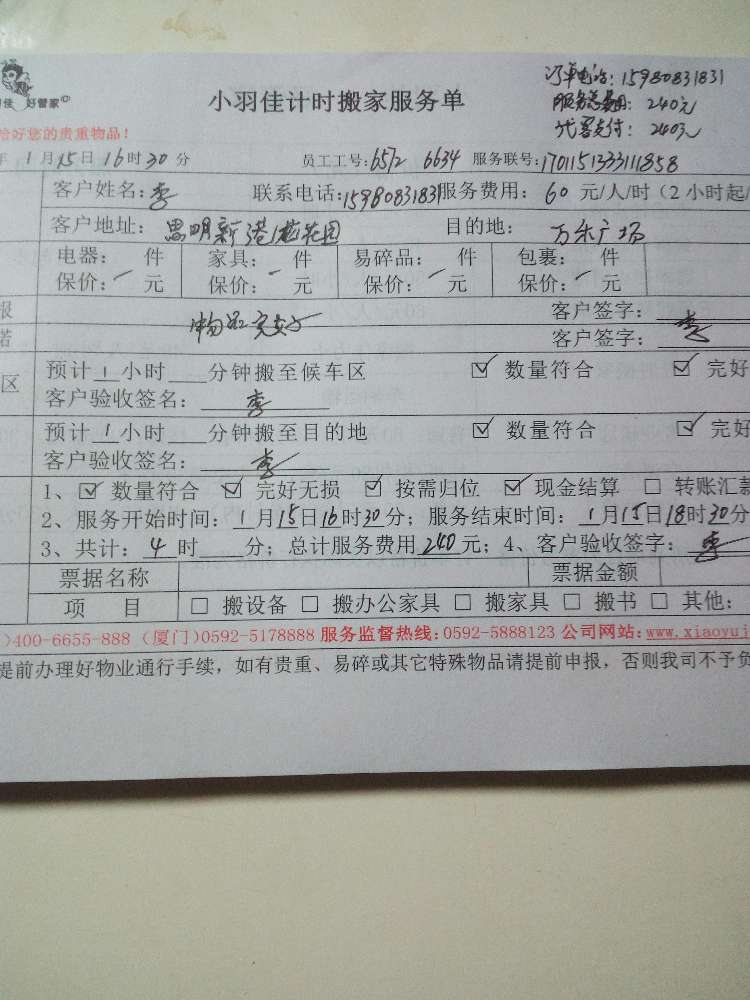 佳 好管家
小羽佳计时搬家服务单
订单电话：15980831831
服务总费用：240元
代客支付：240元
好您的贵重物品！
年 1 月 15 日 16 时 30 分 员工工号：6572 6634 服务联号：1701151333111858
客户姓名：李 联系电话：15980831831 服务费用：60 元/人/时（2 小时起/
客户地址：思明新港 花园 目的地：万乐广场
电器： 件 家具： 件 易碎品： 件 包裹： 件
保价： 元 保价： 元 保价： 元 保价： 元
报 客户签字：
诺 客户签字：李
区 预计 1 小时___分钟搬至候车区 ☑ 数量符合 ☑ 完好
客户验收签名：李
预计 1 小时___分钟搬至目的地 ☑ 数量符合 ☑ 完好
客户验收签名：李
1、☑ 数量符合 ☑ 完好无损 ☑ 按需归位 ☑ 现金结算 □ 转账汇款
2、服务开始时间：1 月 15 日 16 时 30 分；服务结束时间：1 月 15 日 18 时 30 分
3、共计：4 时___分；总计服务费用 240 元；4、客户验收签字：李
票据名称 票据金额
项 目 □ 搬设备 □ 搬办公家具 □ 搬家具 □ 搬书 □ 其他：
)400-6655-888 (厦门)0592-5178888 服务监督热线：0592-5888123 公司网站：www.xiaoyuj
提前办理好物业通行手续，如有贵重、易碎或其它特殊物品请提前申报，否则我司不予负